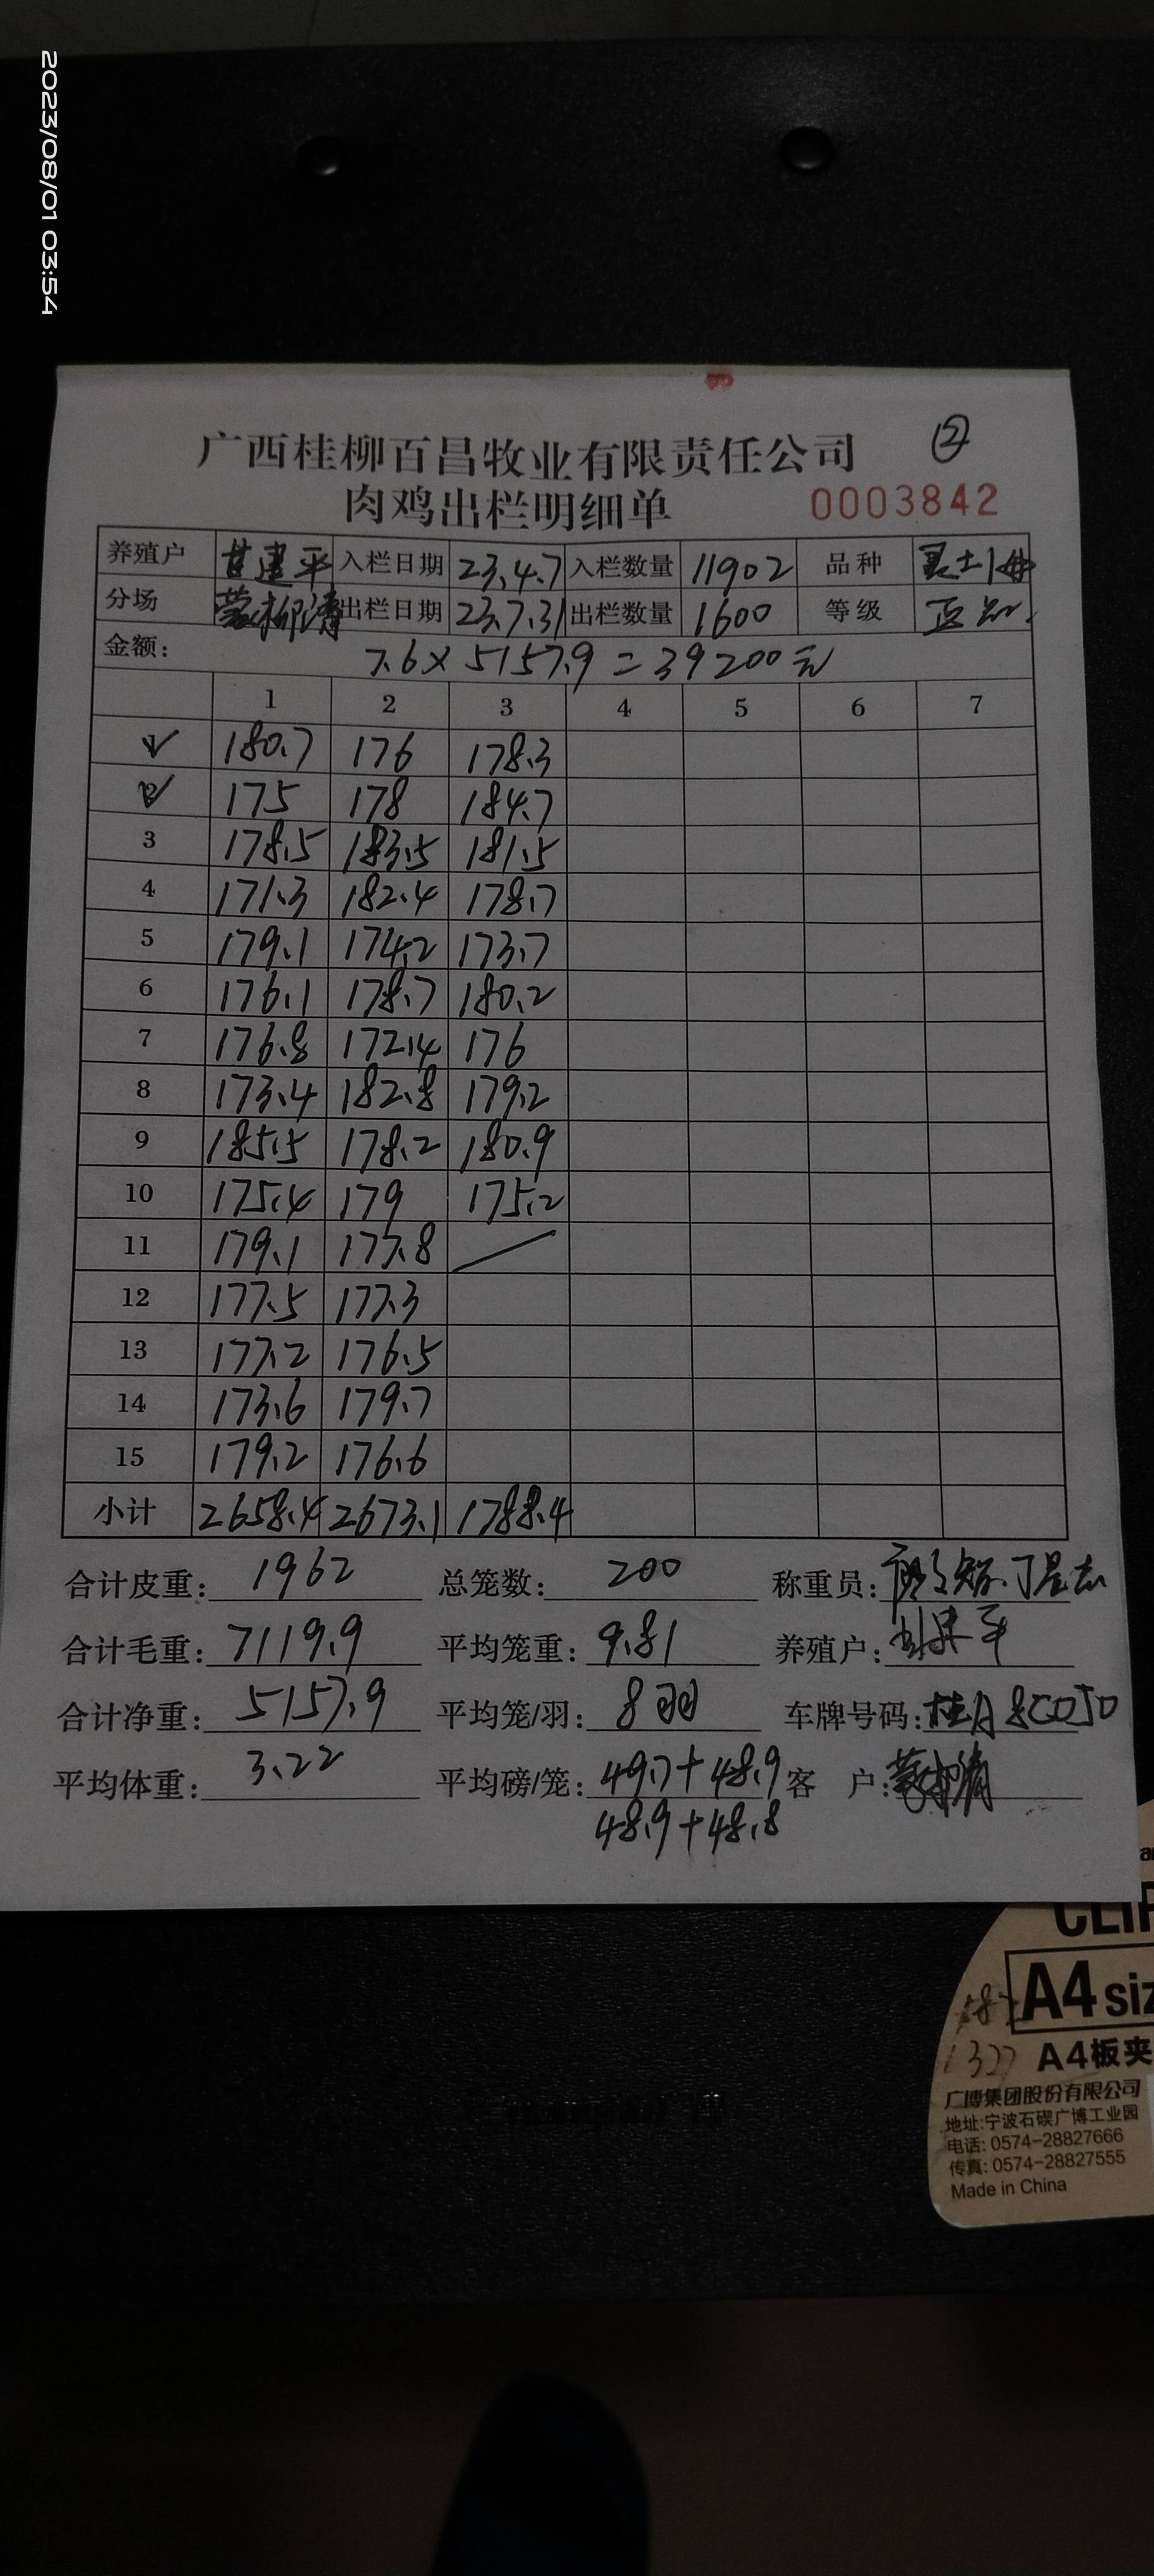 2023/08/01 03:54
广西桂柳百昌牧业有限责任公司 ②
肉鸡出栏明细单 0003842
养殖户 甘建平 入栏日期 23.4.7 入栏数量 11902 品种
分场 蒙柳清 出栏日期 23.7.31 出栏数量 1600 等级 正品
金额: 7.6×5157.9=39200元
1 2 3 4 5 6 7
1 180.7 176 178.3
2 175 178 184.7
3 178.5 183.5 181.5
4 171.3 182.4 178.7
5 179.1 174.2 173.7
6 176.1 178.7 180.2
7 176.8 172.4 176
8 173.4 182.8 179.2
9 185.5 178.2 180.9
10 175.4 179 175.2
11 179.1 177.8
12 177.5 177.3
13 177.2 176.5
14 173.6 179.7
15 179.2 176.6
小计 2658.4 2673.1 1788.4
合计皮重: 1962 总笼数: 200 称重员:
合计毛重: 7119.9 平均笼重: 9.81 养殖户:
合计净重: 5157.9 平均笼/羽: 8羽 车牌号码:
平均体重: 3.22 平均磅/笼: 49.7+48.9 客 户:
48.9+48.8
CLIP
A4 siz
1327 A4板夹
广博集团股份有限公司
地址:宁波石碶广博工业园
电话: 0574-28827666
传真: 0574-28827555
Made in China